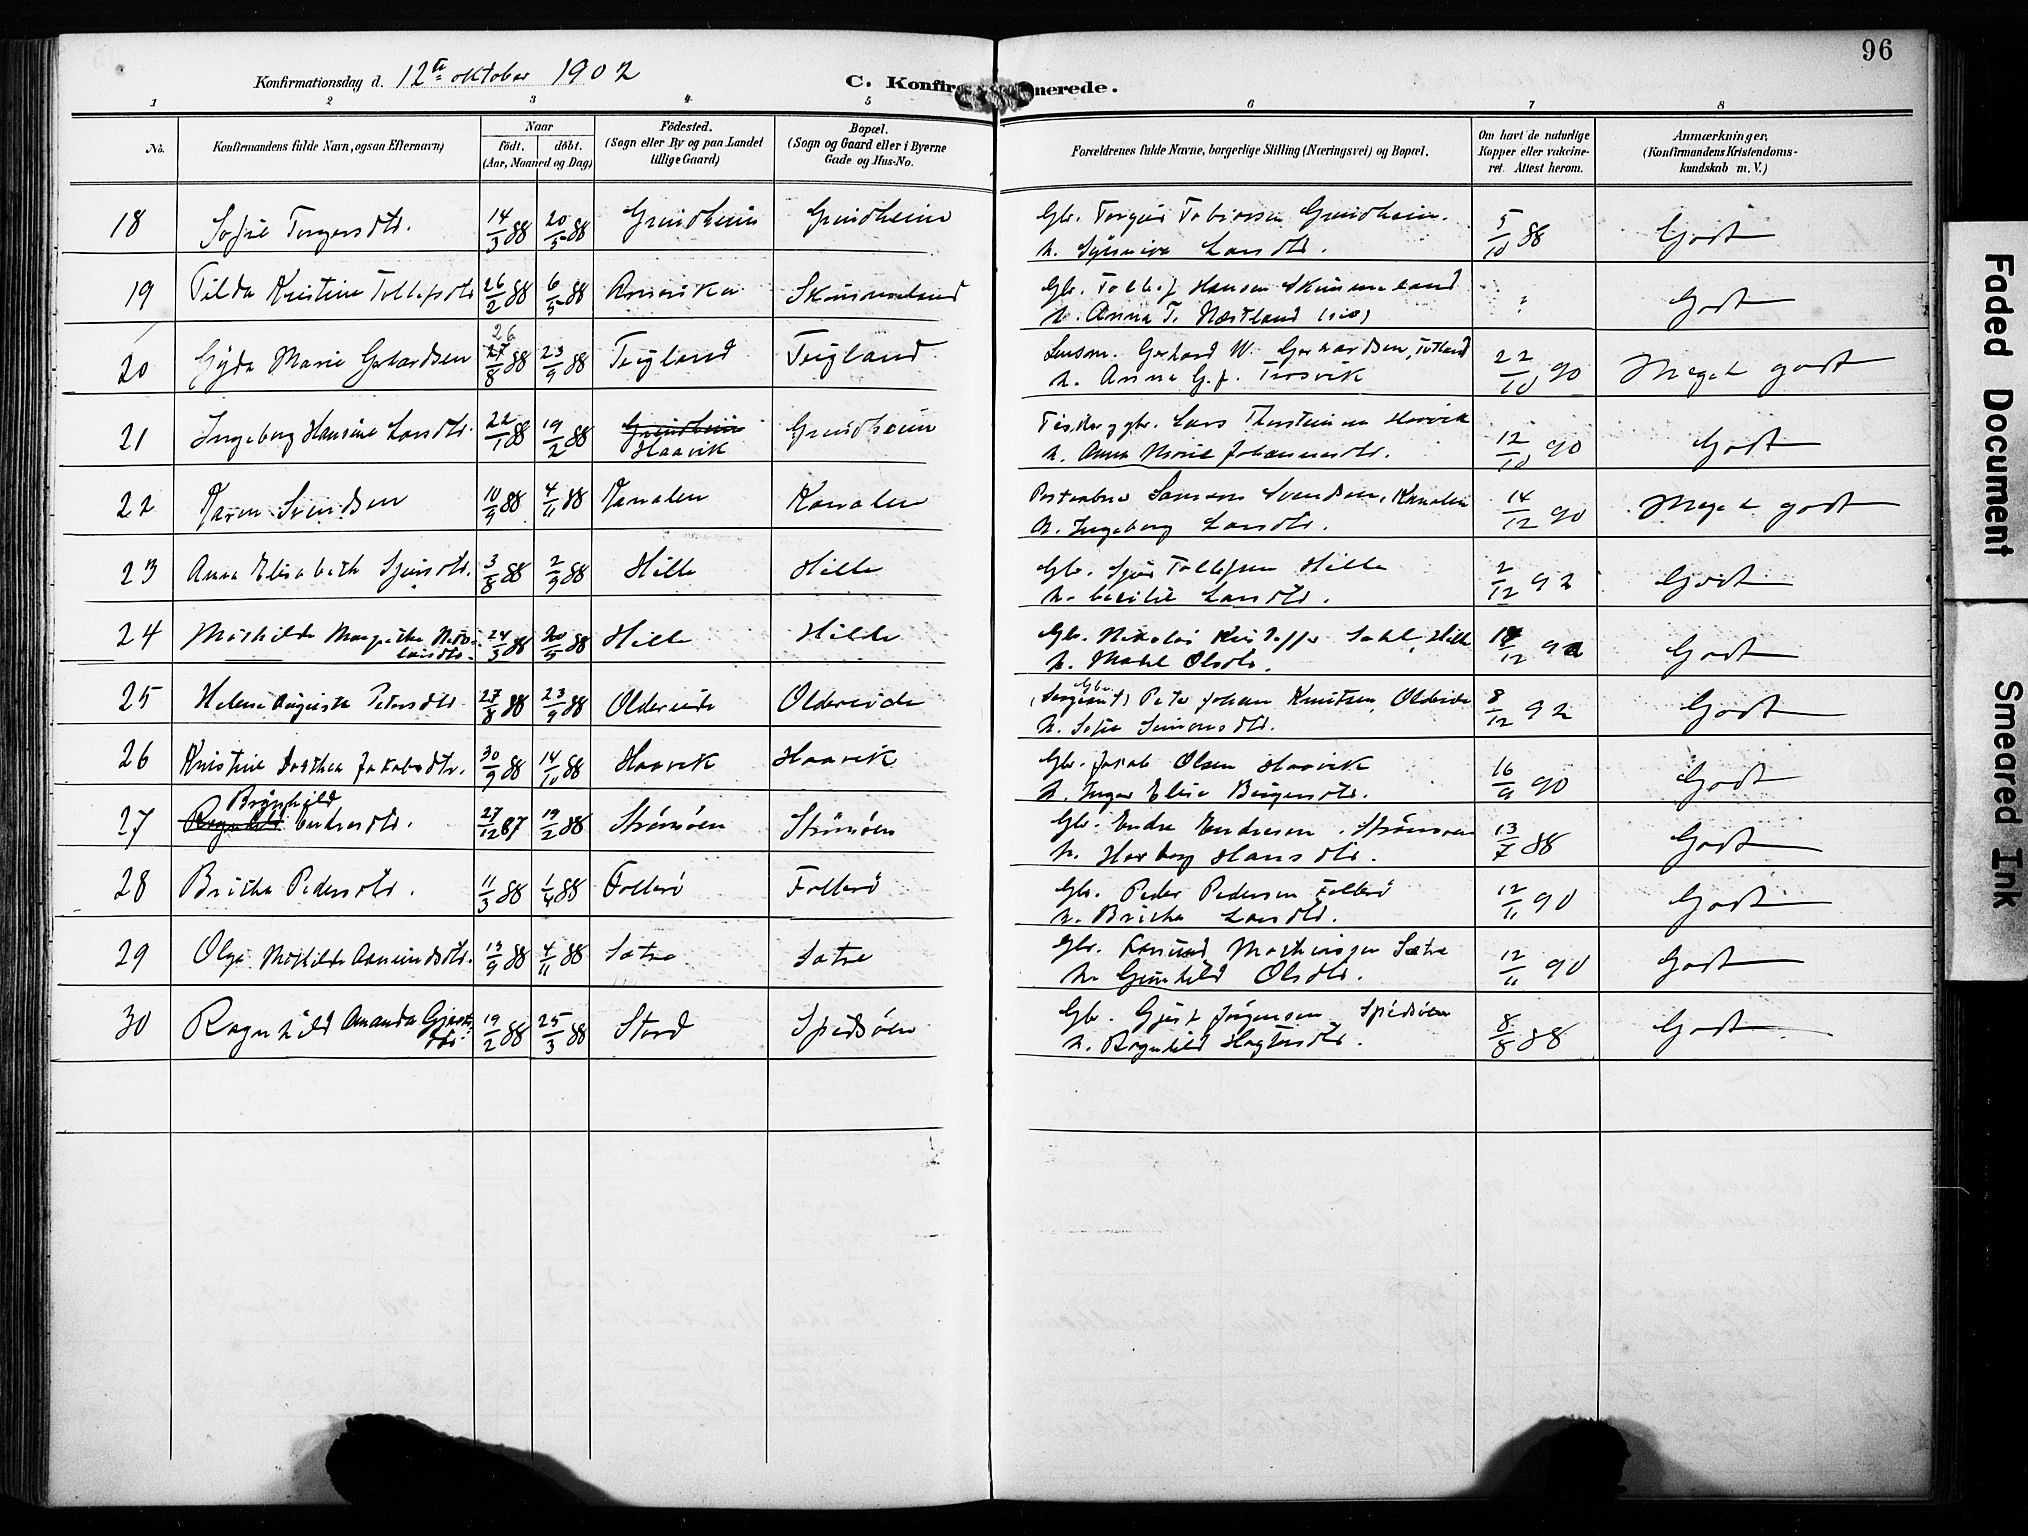 96
Konfirmationsdag d. 12te oktober 1902
C. Konfirmerede.
1 2 3 4 5 6 7 8
No.
Konfirmandens fulde Navn, ogsaa Efternavn)
Naar
födt. döbt.
(Aar, Maaned og Dag)
Födested.
(Sogn eller By og paa Landet
tillige Gaard)
Bopæl.
(Sogn og Gaard eller i Byerne
Gade og Hus-No.
Forældrenes fulde Navne, borgerlige Stilling (Næringsvei) og Bopæl.
Om havt de naturlige
Kopper eller vakcine-
ret. Attest herom.
Anmærkninger,
(Konfirmandens Kristendoms-
kundskab m. V.)
18 Sofie Torgersdtr. 14/3 88 20/5 88 Grindheim Grindheim Gbr. Torger Tobiassen Grindheim. 5/10 88 Godt
h. Synneva Larsdtr.
19 Tilda Kristine Tollefsdtr 26/2 88 6/5 88 Amerika Skimmeland Gbr. Tollef Hansen Skimmeland : Godt
h. Anna T. Næstland
20 Gyda Marie Gerhardsen 26 27/8 88 23/9 88 Teigland Teigland Lensm. Gerhard W. Gerhardsen, 22/10 90 Meget godt
h. Anna G. f. Trosvik
21 Ingeborg Hansine Larsdtr. 22/1 88 19/2 88 Grindheim Haavik Grindheim Fisker og gbr. Lars Thorsteinsen Haavik 12/10 90 Godt
h. Anna Marie Johannesdtr.
22 Karen Svendsen 10/9 88 4/11 88 Kanalen Kanalen Samson Svendsen, Kanalen 14/12 90 Meget godt
h. Ingeborg Larsdtr.
23 Anna Elisabeth Sjursdtr. 3/8 88 2/9 88 Hille Hille Gbr. Sjur Tollefsen Hille 2/12 92 Godt
h. Cecilie Larsdtr.
24 Mathilde Margrethe Niko-
laisdtr. 24/3 88 20/5 88 Hille Hille Gbr. Nikolai Kristoffer Hille 12 92 Godt
h. Malel Olsdtr.
25 Helene Augusta Petersdtr. 27/8 88 23/9 88 Oldereide Oldereide (Sergeant) Gbr. Peter Johan Knutsen, Oldereide 8/12 92 Godt
h. Sofie Simonsdtr.
26 Kristine Dorthea Jakobsdtr. 30/9 88 14/10 88 Haavik Haavik Gbr. Jakob Olsen Haavik 16/9 90 Godt
h. Inger Elise Børgesdtr.
27 Ragnhild Brynhild Endresdtr. 27/12 87 19/2 88 Strömöen Strömöen Gbr. Endre Endresen Strömöen 13/7 88 Godt
h. Herborg Hansdtr.
28 Britha Pedersdtr. 11/3 88 1/4 88 Folderö Folderö Gbr. Peder Pedersen Folderö 12/11 90 Godt
h. Britha Larsdtr.
29 Olga Mathilde Aamundsdtr. 13/9 88 4/11 88 Sætre Sætre Gbr. Aamund Mathiassen Sætre 12/11 90 Godt
h. Gunhild Olsdtr.
30 Ragnhild Amanda Gjerts-
dtr. 19/2 88 25/3 88 Stord Spidsöen Gbr. Gjert Jörgensen Spidsöen 8/8 88 Godt
h. Ragnhild
Faded Document
Smeared Ink